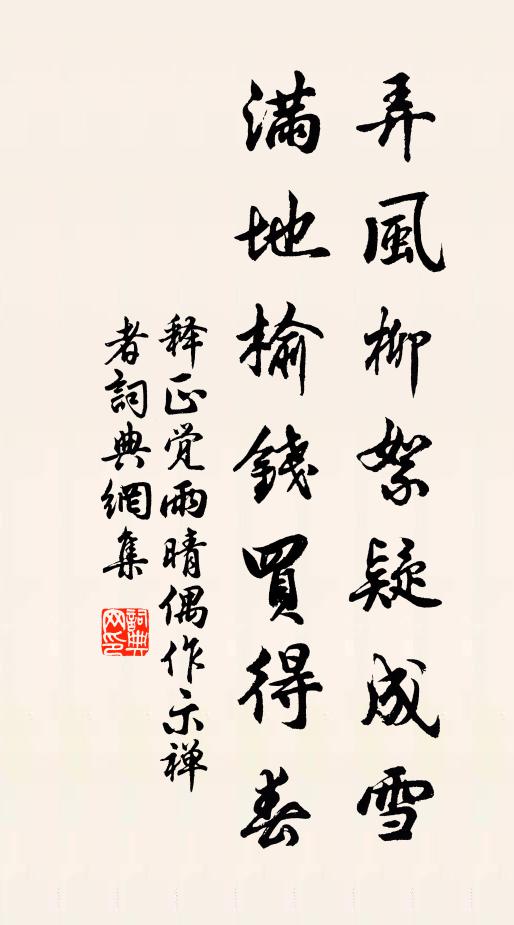 弄風柳絮疑成雪
滿地榆錢買得春
释正觉雨晴偶作示禅
者詞典網集
詞典网印